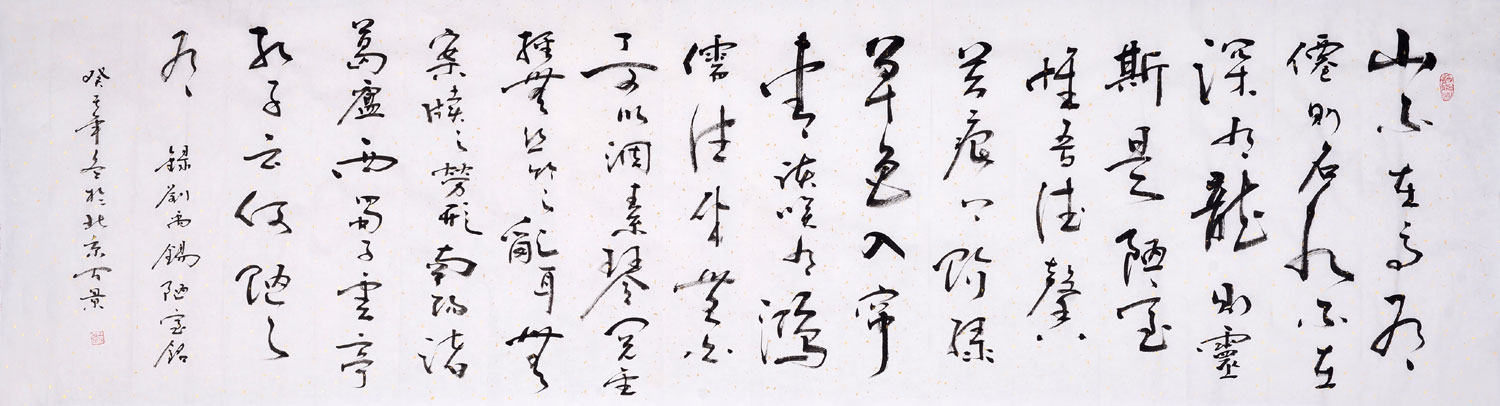 山不在高有〻
僊則名水不在
深有龍則靈
斯是陋室
惟吾德馨
苔痕上階綠
草色入帘
青〻談笑有鴻
儒往來無白
丁可以調素琴閱金
經無絲竹之亂耳無
案牘之勞形南陽諸
葛廬西蜀子雲亭
孔子云何陋之
有
錄劉禹錫陋室銘
癸年冬於北京